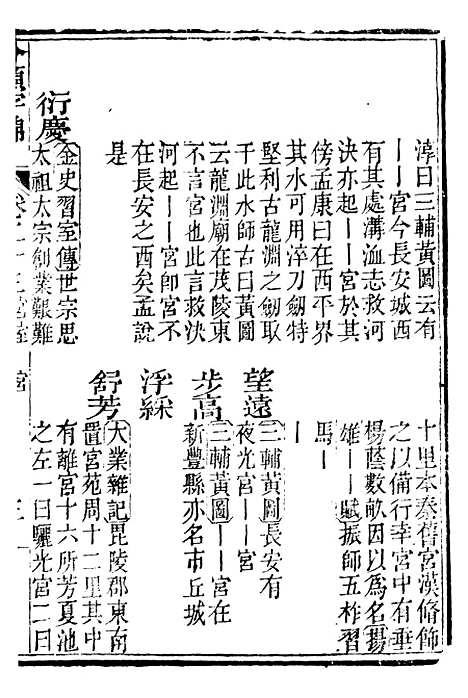 淳曰三輔黃圖云有
——宮今長安城西
有其處溝洫志救河
決亦起——宮於其
傍孟康曰在西平界
其水可用淬刀劒特
堅利古龍淵之劒取
于此水師古曰黃圖
云龍淵廟在茂陵東
不言宮也此言救決
河起——宮卽宮不
在長安之西矣孟說
是
衍慶
金史習室傳世宗思
太祖太宗創業艱難
十里本秦舊宮漢脩飾
之以備行幸宮中有垂
楊蔭數畝因以為名揚
雄——賦振師五柞習
馬—
—
望遠
三輔黃圖長安有
夜光宮——宮
步高
三輔黃圖——宮在
新豐縣亦名市丘城
浮綵
舒芳
大業雜記毘陵郡東南
置宮苑周十二里其中
有離宮十六所芳夏池
之左一曰驪光宮二曰
類字錦 卷二十三 宮室 宮 三